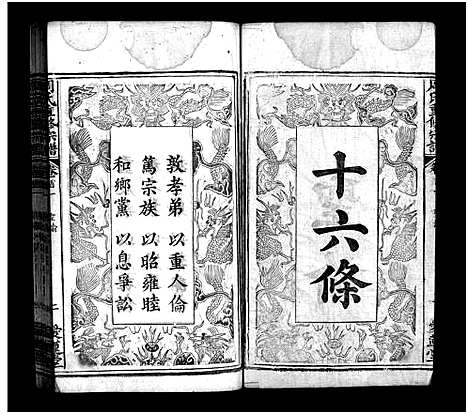 十六條
敦孝弟 以重人倫
篤宗族 以昭雍睦
和鄉黨 以息爭訟